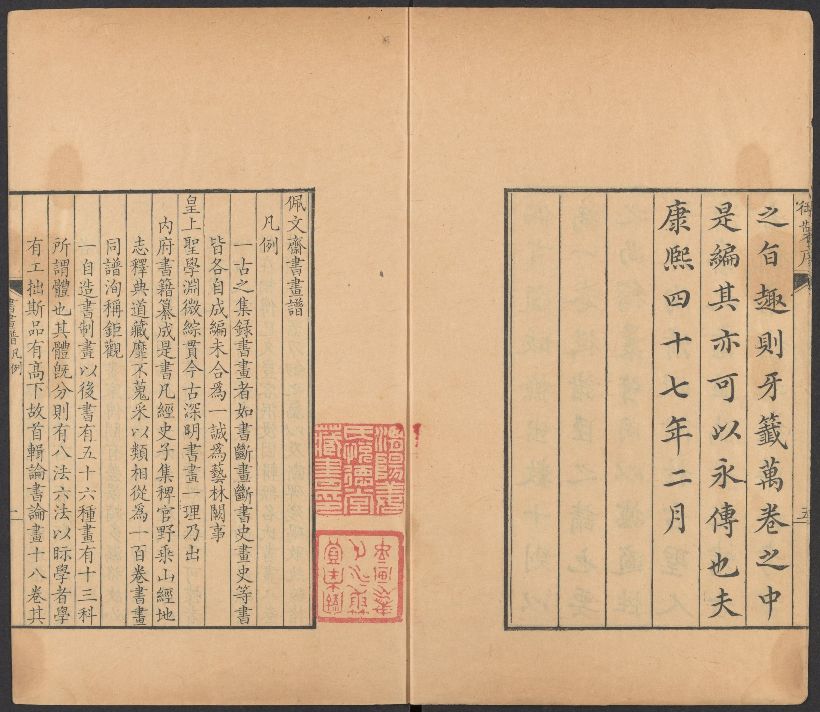 之旨趣則牙籤萬卷之中
是編其亦可以永傳也夫
康熙四十七年二月
佩文齋書畫譜
凡例
一古之集録書畫者如書斷畫斷書史畫史等書
皆各自成編未合為一誠為藝林闕事
皇上聖學淵微綜貫今古深明書畫一理乃出
内府書籍纂成是書凡經史子集稗官野乘山經地
志釋典道藏靡不蒐采以類相從為一百卷書畫
同譜洵稱鉅觀
一自造書制畫以後書有五十六種畫有十三科
所謂體也其體既分則有八法六法以眎學者學
有工拙斯品有高下故首輯論書論畫十八卷其
書畫譜 凡例